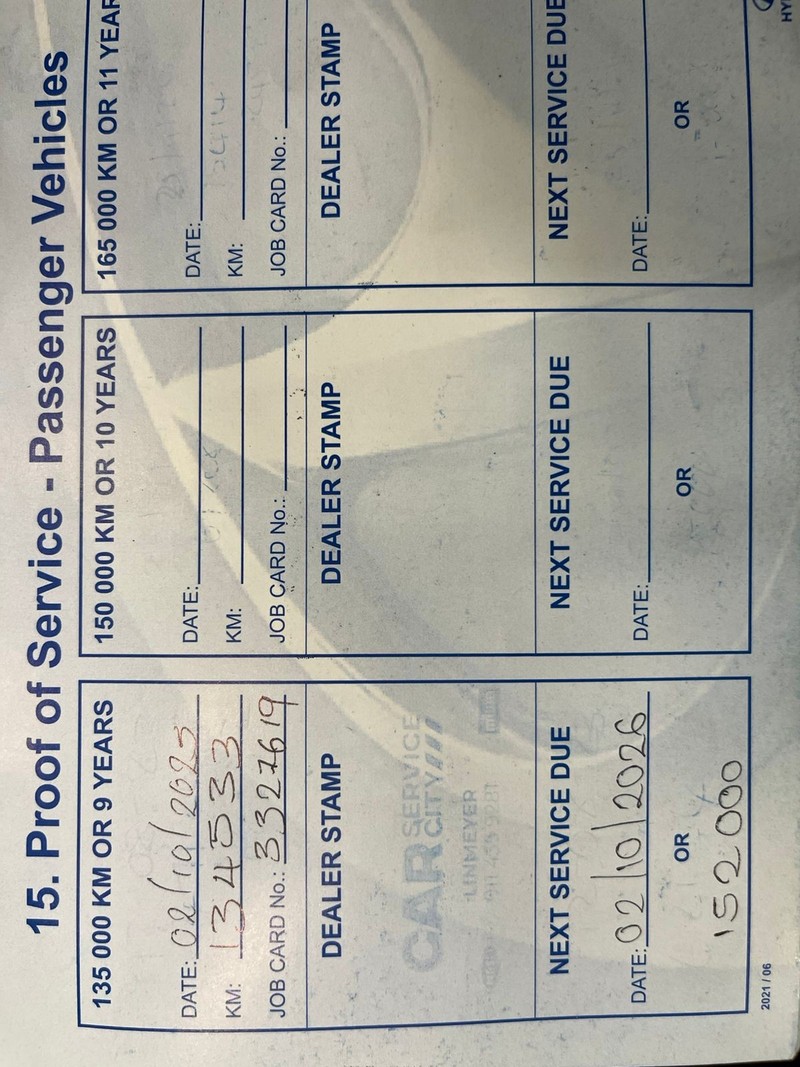 15. Proof of Service - Passenger Vehicles
135 000 KM OR 9 YEARS
DATE: 02/10/2025
KM: 134533
JOB CARD No.: 3327619
DEALER STAMP
CAR SERVICE CITY
LINMEYER
NEXT SERVICE DUE
DATE: 02/10/2026
OR
152000
150 000 KM OR 10 YEARS
DATE:
KM:
JOB CARD No.:
DEALER STAMP
NEXT SERVICE DUE
DATE:
OR
165 000 KM OR 11 YEAR
DATE:
KM:
JOB CARD No.:
DEALER STAMP
NEXT SERVICE DUE
DATE:
OR
2021 / 06
HY